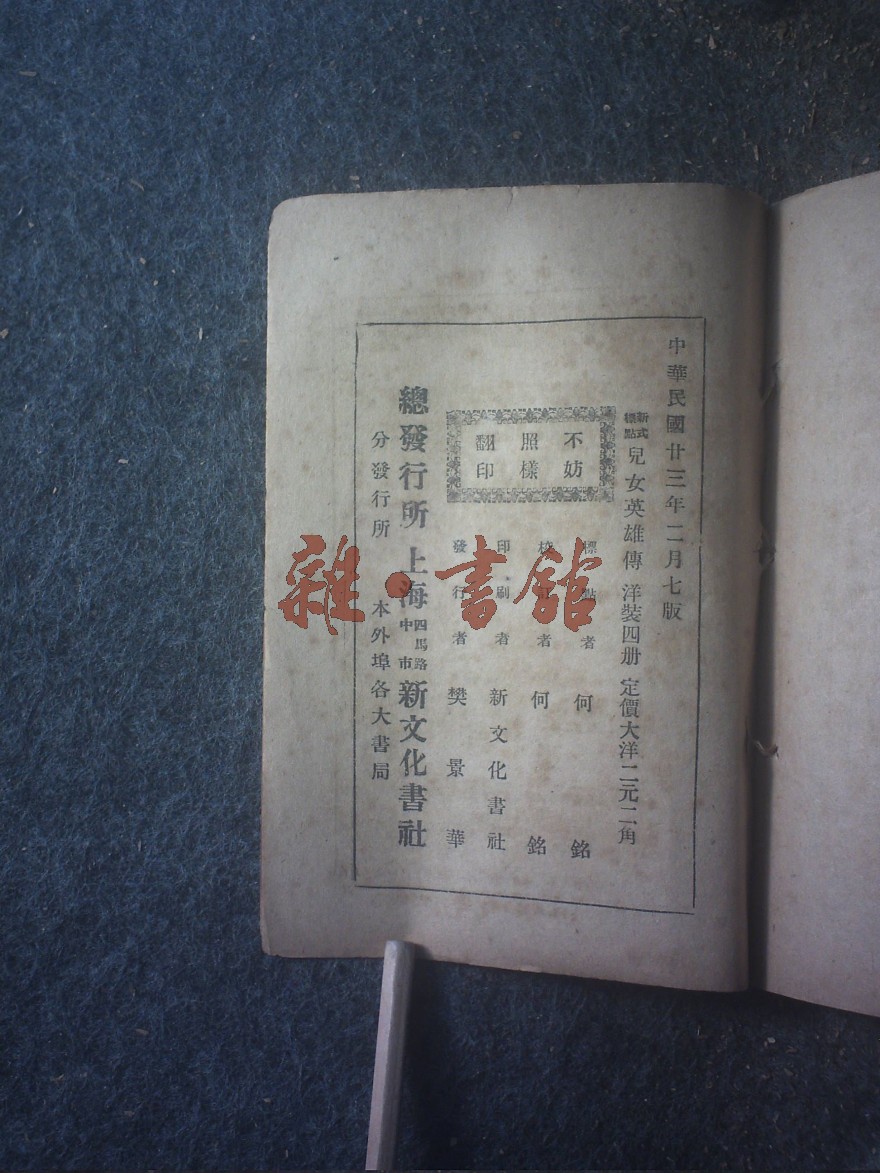 中華民國廿三年二月七版
新式標點 兒女英雄傳 洋裝四册 定價大洋二元二角
不妨
照樣
翻印
標點者 何銘
校訂者 何銘
印刷者 新文化書社
發行者 樊景華
總發行所 上海四馬路中市 新文化書社
分發行所 本外埠各大書局
雜·書館